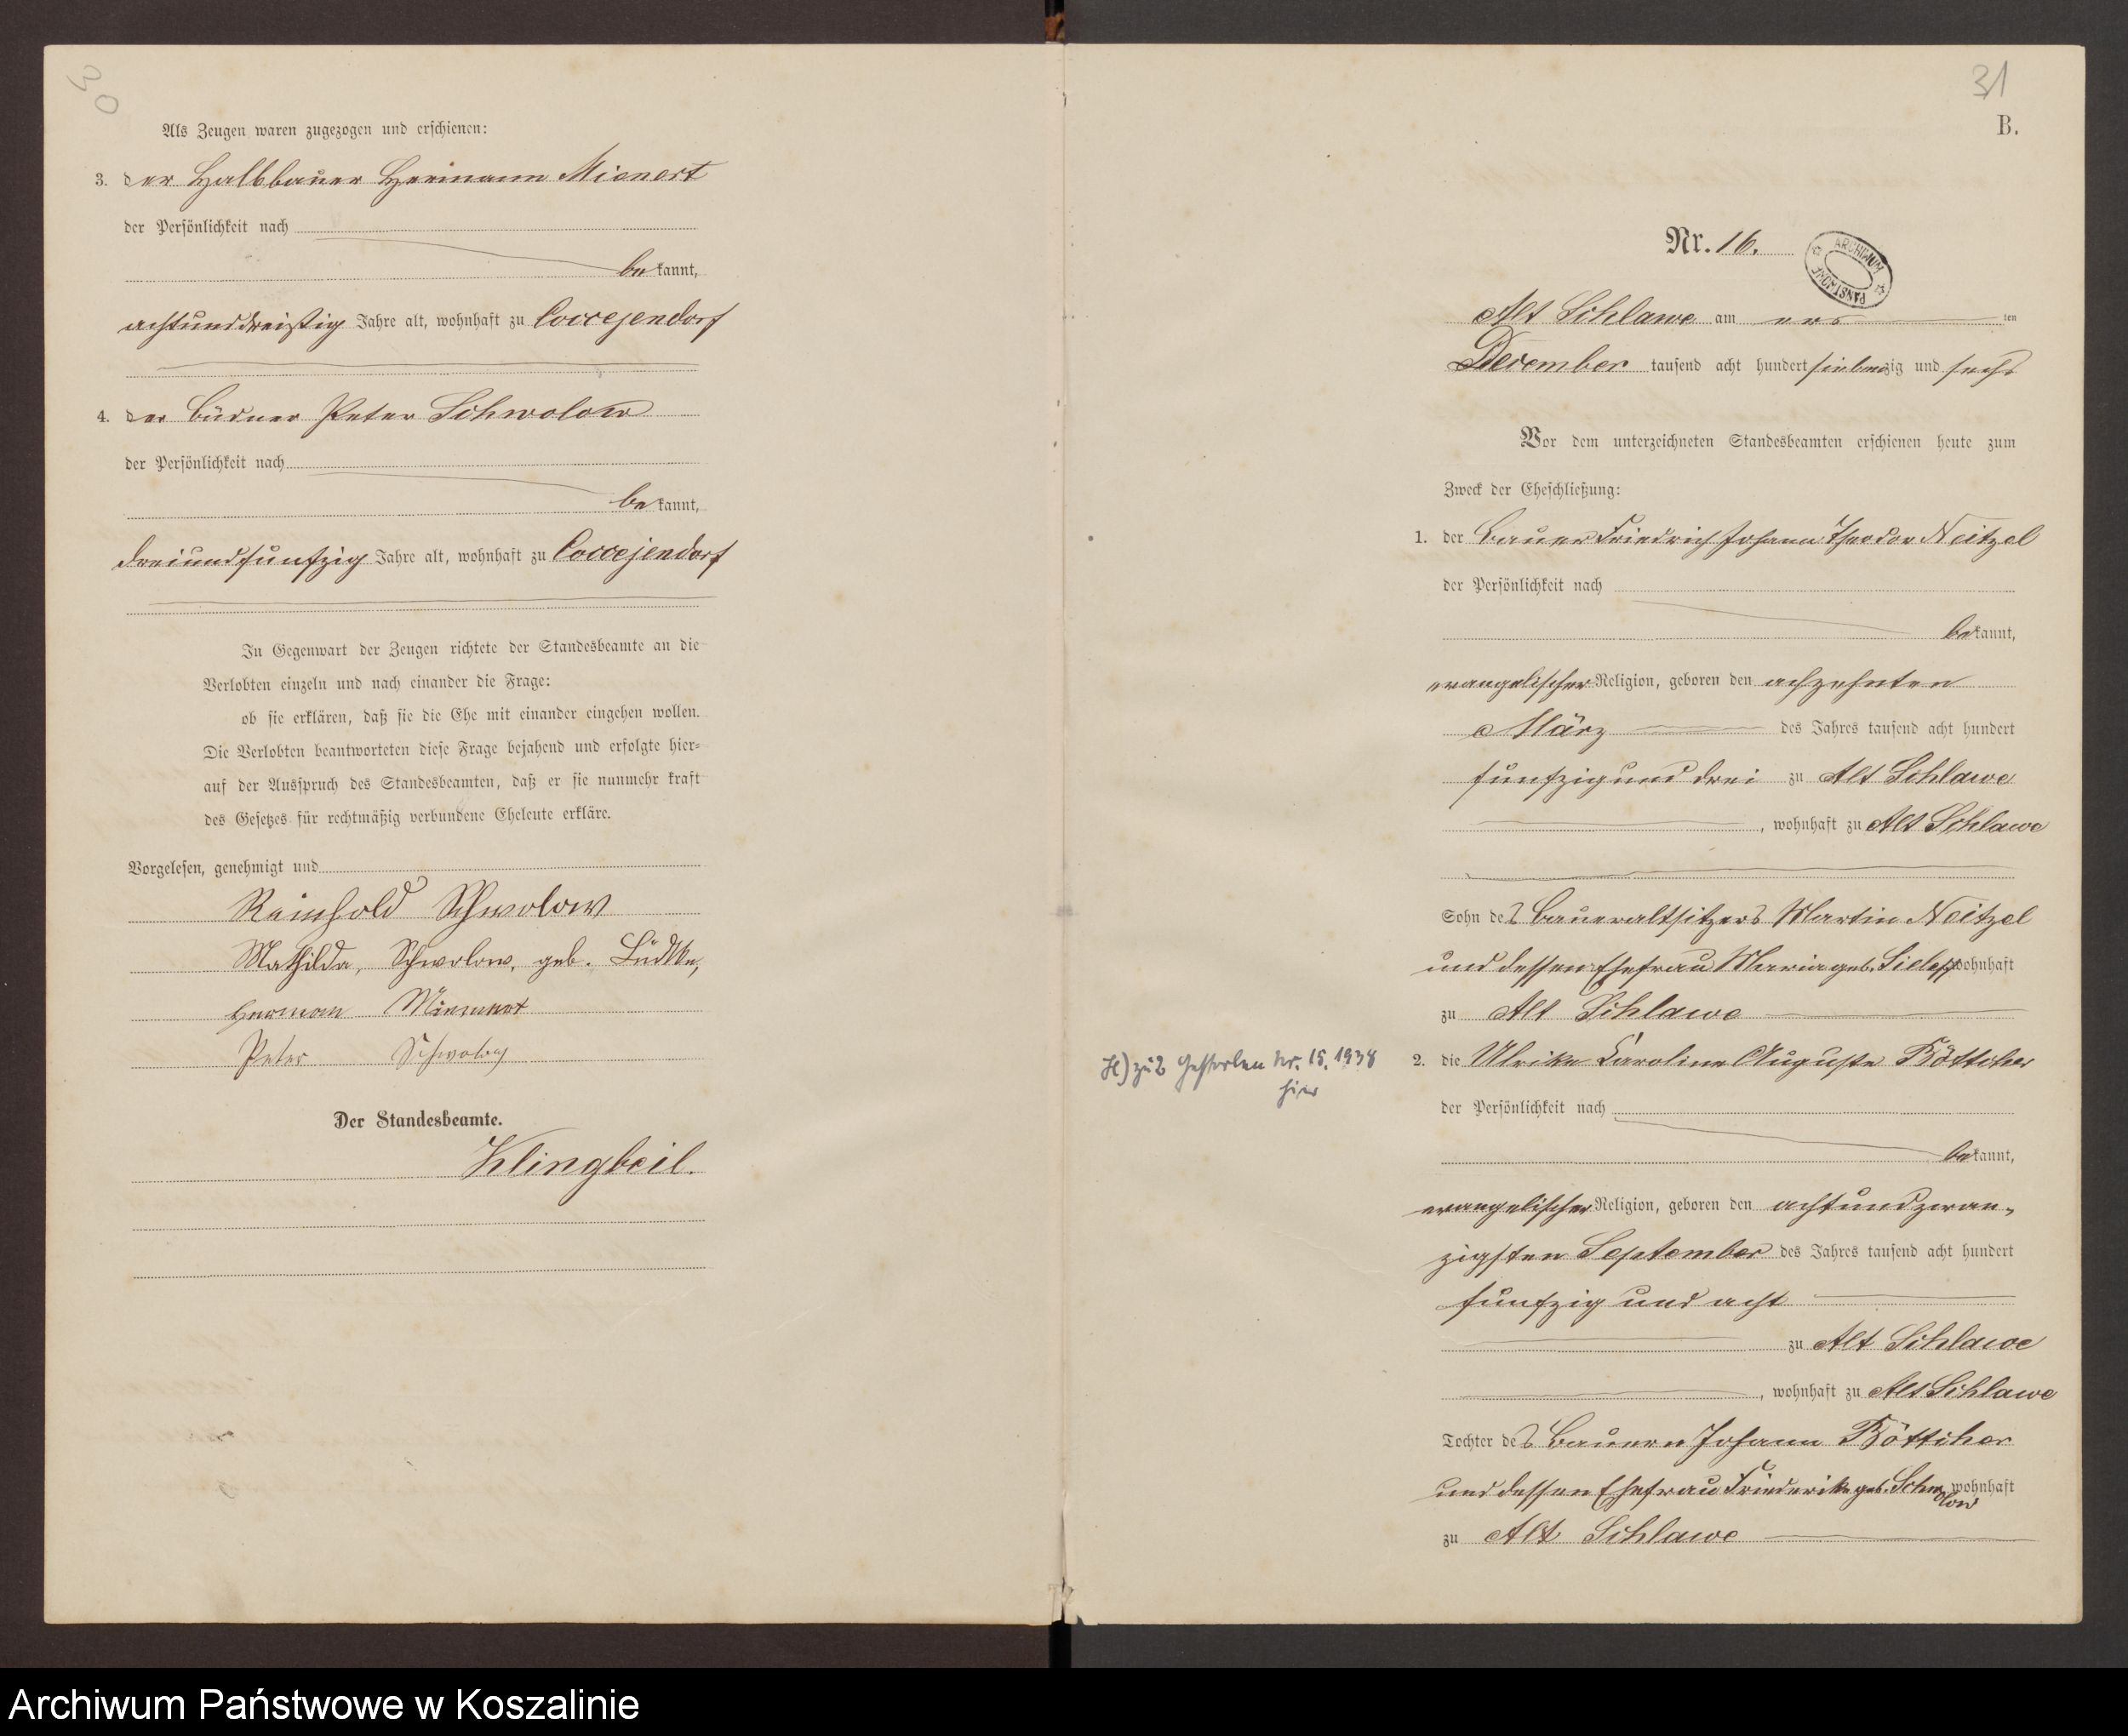 30
Als Zeugen waren zugezogen und erschienen:
3. der Halbbauer Hermann Mienert
der Persönlichkeit nach
bekannt,
achtunddreißig Jahre alt, wohnhaft zu Coccejendorf
4. der Büdner Peter Schwolow
der Persönlichkeit nach
bekannt,
dreiundfunfzig Jahre alt, wohnhaft zu Coccejendorf
In Gegenwart der Zeugen richtete der Standesbeamte an die
Verlobten einzeln und nach einander die Frage:
ob sie erklären, daß sie die Ehe mit einander eingehen wollen.
Die Verlobten beantworteten diese Frage bejahend und erfolgte hier-
auf der Ausspruch des Standesbeamten, daß er sie nunmehr kraft
des Gesetzes für rechtmäßig verbundene Eheleute erkläre.
Vorgelesen, genehmigt und
Reinhold Schwolow
Mathilda, Schwolow, geb. Lüdtke,
Herman Mienert
Peter Schwolow
Der Standesbeamte.
Klingbeil.
31
B.
Nr. 16.
ARCHIWUM PAŃSTWOWE
Alt Schlawe am ers ten
December tausend acht hundert siebenzig und sechs
Vor dem unterzeichneten Standesbeamten erschienen heute zum
Zweck der Eheschließung:
1. der Bauer Friedrich Johann Theodor Neitzel
der Persönlichkeit nach
bekannt,
evangelischer Religion, geboren den achzehnten
März des Jahres tausend acht hundert
funfzig und drei zu Alt Schlawe
, wohnhaft zu Alt Schlawe
Sohn des Baueraltsitzers Martin Neitzel
und dessen Ehefrau Maria geb. Sielaff wohnhaft
zu Alt Schlawe
H) zu 2 Gestorben Nr. 15. 1938
hier
2. die Ulrike Caroline Auguste Böttcher
der Persönlichkeit nach
bekannt,
evangelischer Religion, geboren den achtundzwan-
zigsten September des Jahres tausend acht hundert
funfzig und acht
zu Alt Schlawe
, wohnhaft zu Alt Schlawe
Tochter des Bauern Johann Böttcher
und dessen Ehefrau Friederike geb. Schwolow wohnhaft
zu Alt Schlawe
Archiwum Państwowe w Koszalinie